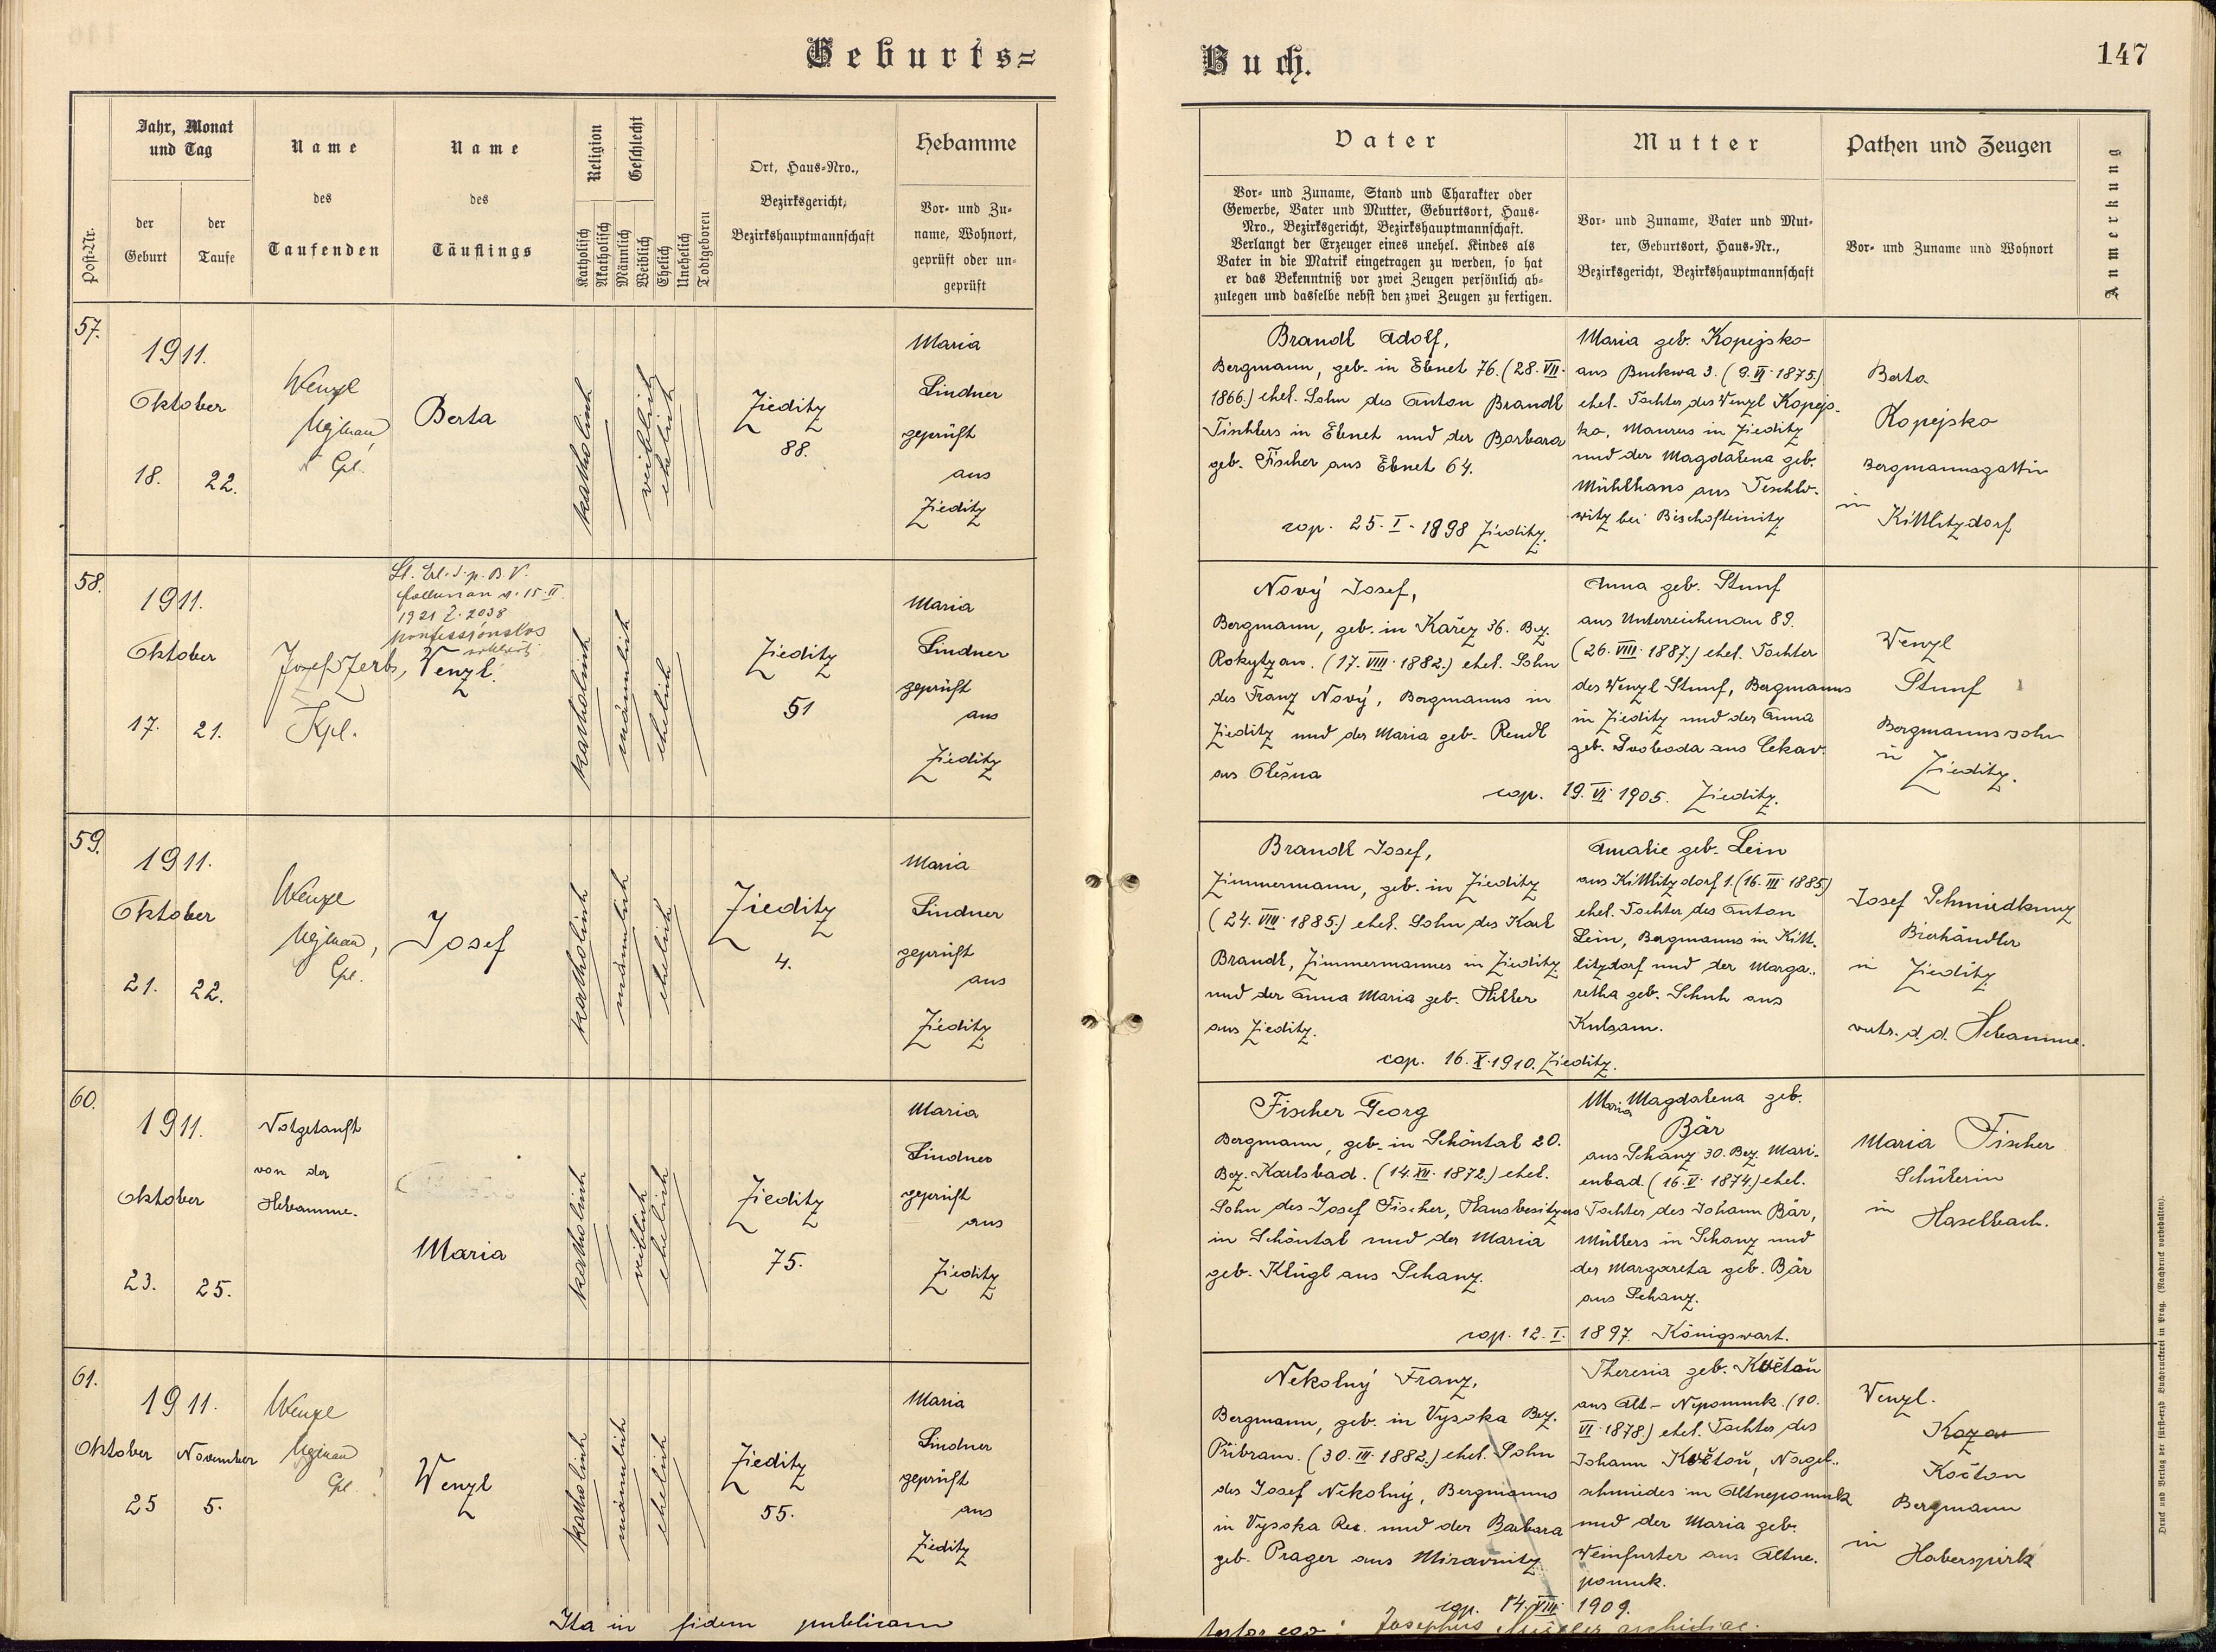 Geburts=
Buch.
147
Post-Nr.
Jahr, Monat
und Tag
der
Geburt
der
Taufe
Name
des
Taufenden
Name
des
Täuflings
Religion
Katholisch
Akatholisch
Geschlecht
Männlich
Weiblich
Ehelich
Unehelich
Todtgeboren
Ort, Haus-Nro.,
Bezirksgericht,
Bezirkshauptmannschaft
Hebamme
Vor- und Zu-
name, Wohnort,
geprüft oder un-
geprüft
Vater
Vor- und Zuname, Stand und Charakter oder
Gewerbe, Vater und Mutter, Geburtsort, Haus-
Nro., Bezirksgericht, Bezirkshauptmannschaft.
Verlangt der Erzeuger eines unehel. Kindes als
Vater in die Matrik eingetragen zu werden, so hat
er das Bekenntniß vor zwei Zeugen persönlich ab-
zulegen und dasselbe nebst den zwei Zeugen zu fertigen.
Mutter
Vor- und Zuname, Vater und Mut-
ter, Geburtsort, Haus-Nr.,
Bezirksgericht, Bezirkshauptmannschaft
Pathen und Zeugen
Vor- und Zuname und Wohnort
Anmerkung
57.
1911.
Oktober
18. 22.
Wenzl
Cpl.
Berta
katholisch
weiblich
ehelich
Zieditz
88.
Maria
Lindner
geprüft
aus
Zieditz
Brandl Adolf,
Bergmann, geb. in Ebnet 76. (28. VII.
1866.) ehel. Sohn des Anton Brandl
Tischlers in Ebnet und der Barbara
geb. Fischer aus Ebnet 64.
cop. 25. I. 1898 Zieditz.
Maria geb. Kopejsko
aus Buckwa 3. (9. VI. 1875)
ehel. Tochter des Wenzl Kopejs-
ko, Maurers in Zieditz
und der Magdalena geb.
Mühlhans aus Teschlo-
witz bei Bischofteinitz
Berta
Kopejsko
Bergmannsgattin
in
Kittlitzdorf
58.
1911.
Oktober
17. 21.
Josef Zerb,
Kpl.
Lt. Erl. d. p. B. V.
Falkenau v. 15. II.
1921 Z. 2038
konfessionslos
erklärt
Wenzl.
katholisch
männlich
ehelich
Zieditz
51
Maria
Lindner
geprüft
aus
Zieditz
Nový Josef,
Bergmann, geb. in Kařez 36. Bez.
Rokytzan. (17. VIII. 1882.) ehel. Sohn
des Franz Nový, Bergmanns in
Zieditz und der Maria geb. Rendl
aus Olešna
cop. 19. VI. 1905. Zieditz.
Anna geb. Stunf
aus Unterreichenau 89.
(26. VIII. 1887.) ehel. Tochter
des Wenzl Stunf, Bergmanns
in Zieditz und der Anna
geb. Svoboda aus Cekav.
Wenzl
Stunf
Bergmannssohn
in
Zieditz.
59.
1911.
Oktober
21. 22.
Wenzl
Cpl.
Josef
katholisch
männlich
ehelich
Zieditz
4.
Maria
Lindner
geprüft
aus
Zieditz
Brandl Josef,
Zimmermann, geb. in Zieditz
(24. VIII. 1885.) ehel. Sohn des Karl
Brandl, Zimmermannes in Zieditz
und der Anna Maria geb. Hiller
aus Zieditz.
cop. 16. X. 1910. Zieditz.
Amalie geb. Lein
aus Kittlitzdorf 1. (16. III. 1885)
ehel. Tochter des Anton
Lein, Bergmanns in Kitt-
litzdorf und der Marga-
retha geb. Schuh aus
Kulsam.
Josef Schmiedkunz
Bierhändler
in Zieditz
vertr. d. d. Hebamme.
60.
1911.
Oktober
23. 25.
Notgetauft
von der
Hebamme.
Maria
katholisch
weiblich
ehelich
Zieditz
75.
Maria
Lindner
geprüft
aus
Zieditz
Fischer Georg
Bergmann, geb. in Schöntal 20.
Bez. Karlsbad. (14. XII. 1872.) ehel.
Sohn des Josef Fischer, Hausbesitzers
in Schöntal und der Maria
geb. Klügl aus Schanz.
cop. 12. I. 1897. Königswart.
Maria Magdalena geb.
Bär
aus Schanz 30. Bez. Mari-
enbad. (16. V. 1874) ehel.
Tochter des Johann Bär,
Müllers in Schanz und
der Margareta geb. Bär
aus Schanz.
Maria Fischer
Schülerin
in Haselbach.
61.
1911.
Oktober November
25 5.
Wenzl
Cpl.
Wenzl
katholisch
männlich
ehelich
Zieditz
55.
Maria
Lindner
geprüft
aus
Zieditz
Nekolný Franz,
Bergmann, geb. in Vysoka Bez.
Přibram. (30. III. 1882.) ehel. Sohn
des Josef Nekolný, Bergmanns
in Vysoka Rec. und der Barbara
geb. Prager aus Miravnitz
cop. 14. VIII. 1909.
Theresia geb. Květoň
aus Alt-Nepomuk. (10.
VI. 1878.) ehel. Tochter des
Johann Květoň, Nagel-
schmiedes in Altnepomuk
und der Maria geb.
Weinfurter aus Altne-
pomuk.
Wenzl.
Kočton
Bergmann
in
Haberspirk
Ita in fidem publicam
testor ego: Josephus Müller archidiac.
Druck und Verlag der fürst-erzb. Buchdruckerei in Prag. (Nachdruck vorbehalten).